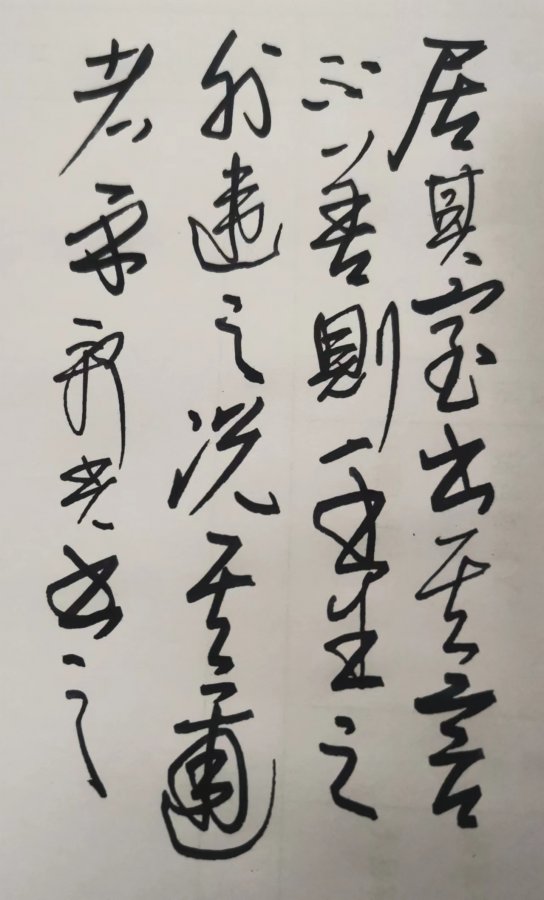 居其室出其言
不善則千里之
外違之況其邇
者乎书之